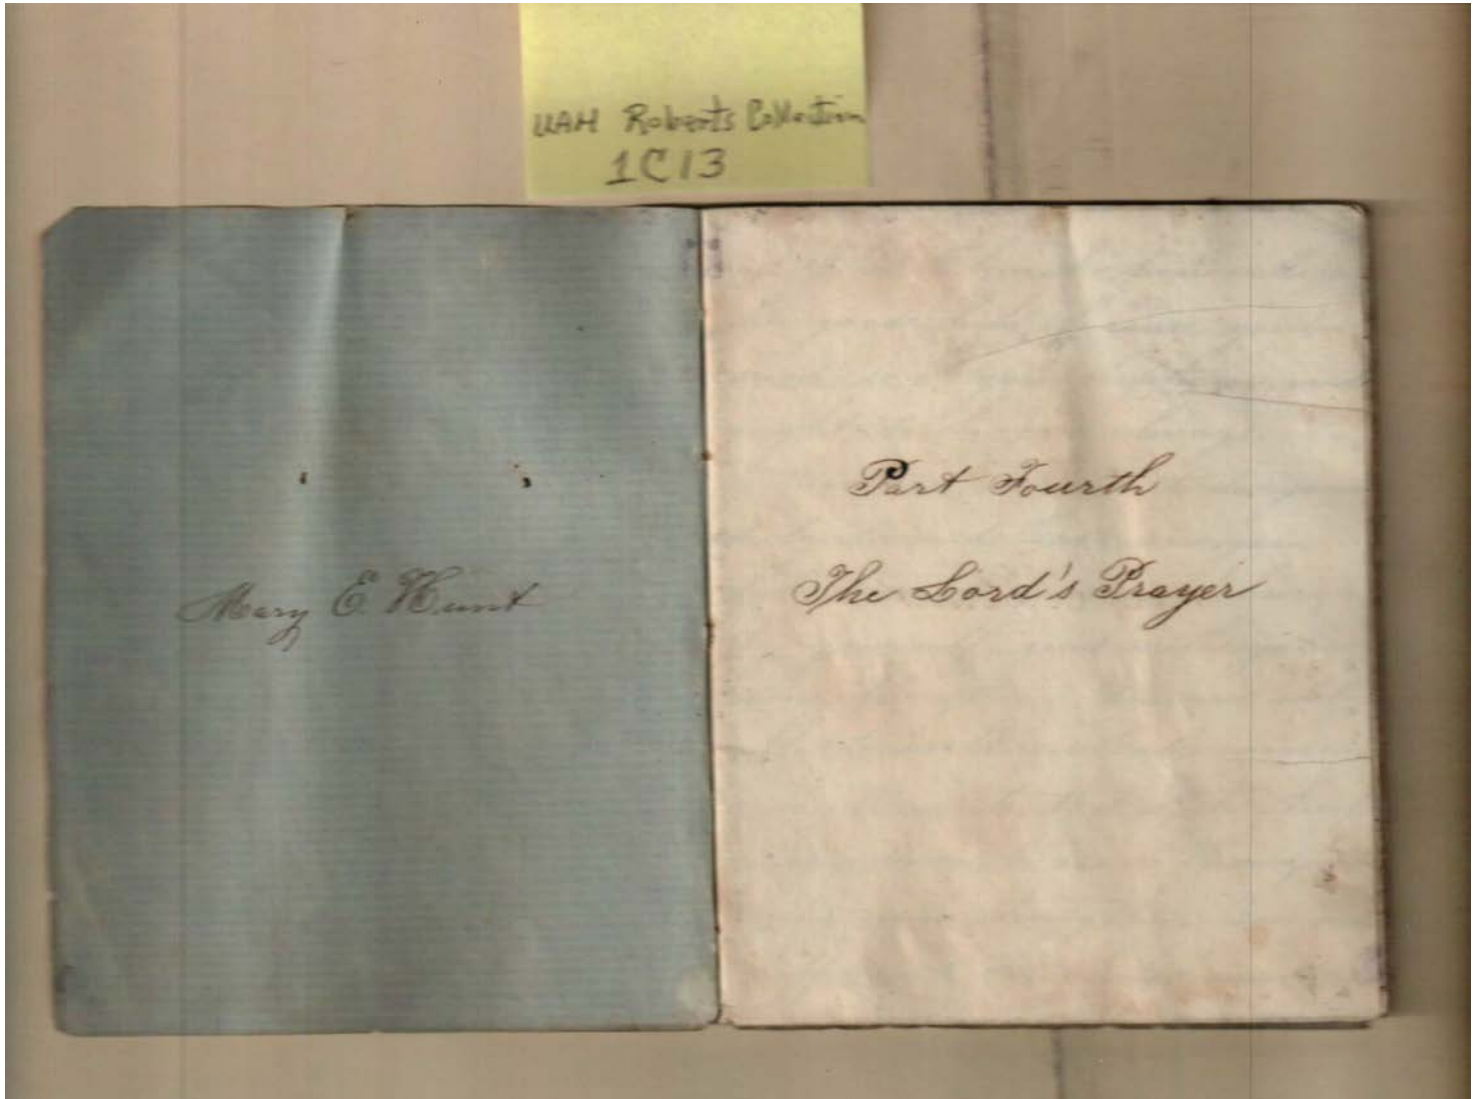 UAH Roberts Collection
1C13
Mary E. Hunt
Part Fourth
The Lord's Prayer